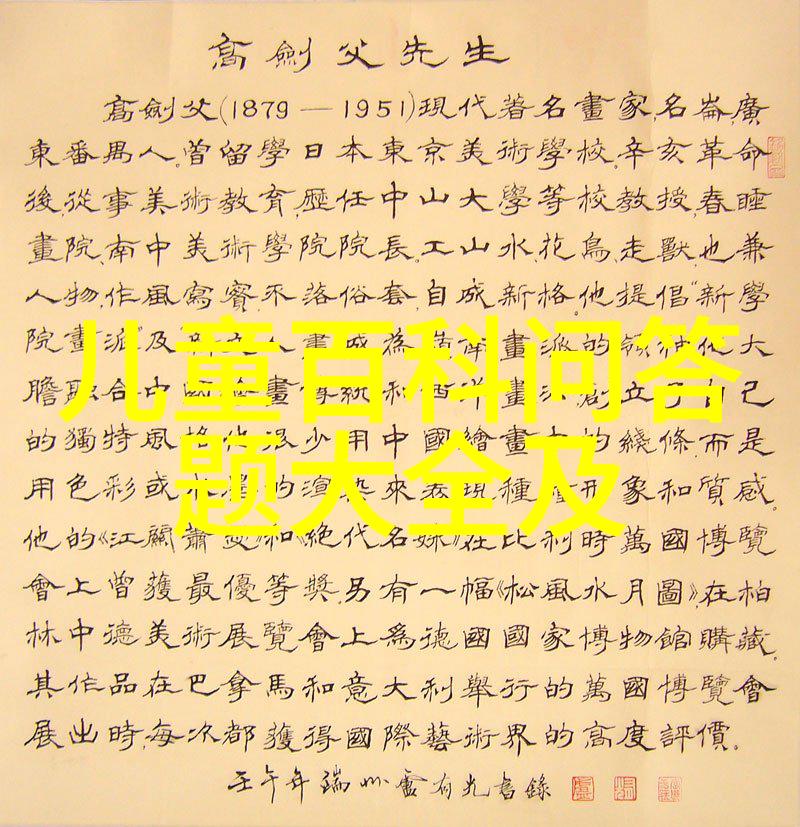 高劍父先生
高劍父(1879—1951)現代著名畫家,名崙,廣
東番禺人。曾留學日本東京美術學校。辛亥革命
後,從事美術教育,歷任中山大學等校教授,春睡
畫院、南中美術學院院長。工山水、花鳥、走獸,也兼
人物,作風寫實,不落俗套,自成新格。他提倡"新學
院畫派"及 人畫 成為 畫派的 他大
儿童百科问答
膽融合中 畫傳統和西洋畫 創立了自己
的獨特風格 少用中國繪畫 的綫條,而是
题大全及
用色彩或 的渲染來表現種 形象和質感。
他的《江關蕭 》和《絕代名姝》在比利時萬國博覽
會上曾獲最優等獎,另有一幅《松風水月圖》,在柏
林中德美術展覽會上為德國國家博物館購藏。
其作品在巴拿馬和意大利舉行的萬國博覽會
展出時,每次都獲得國際藝術界的高度評價。
壬午年端州盧有光書錄